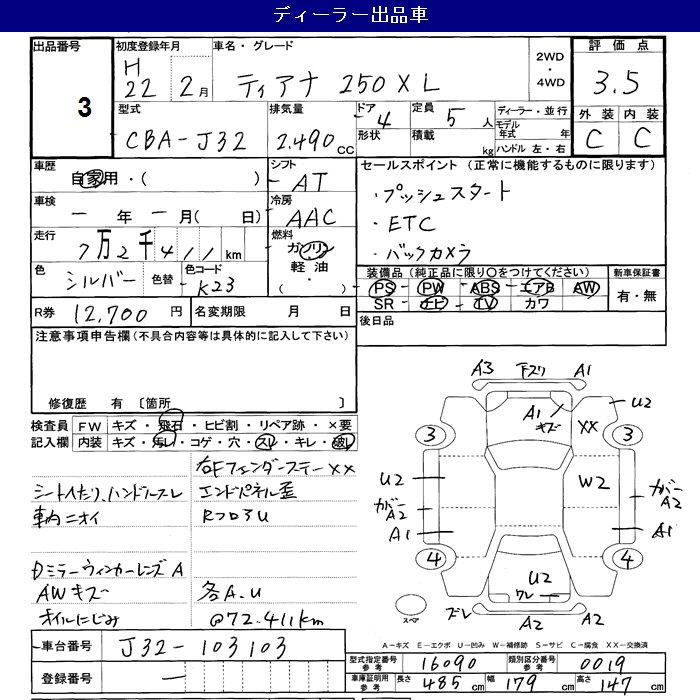 ディーラー出品車
出品番号 初度登録年月 車名・グレード 2WD・4WD 評価点
3 H22 2月 ティアナ 250XL 3.5
型式 排気量 ドア 4 定員 5人 ディーラー・並行 外装 内装
CBA-J32 2.490CC 形状 積載 kg モデル年式 年 ハンドル 左・右 C C
車歴 自家用・( ) シフト AT セールスポイント (正常に機能するものに限ります)
車検 ー年ー月( 日) 冷房 AAC ・プッシュスタート
・ETC
走行 7万2千411km 燃料 ガソリン 軽油 ・( ) ・バックカメラ
色 シルバー 色替 色コード K23 装備品 (純正品に限り○をつけてください) 新車保証書
PS PW ABS エアB AW 有・無
SR ナビ TV カワ
R券 12,700円 名変期限 月 日 後日品
注意事項申告欄 (不具合内容等は具体的に記入して下さい)
修復歴 有 〔箇所 〕
検査員 FW キズ・飛石・ヒビ割・リペア跡・×要
記入欄 内装 キズ・汚レ・コゲ・穴・スレ・キレ・破レ
右Fフェンダーステー××
シートヘたり、ハンドルスレ エンドパネル歪
車内ニオイ RフロアU
Dミラーウィンカーレンズ A
AWキズ 各A.U
オイルにじみ @72.411km
A3 下スリ A1
A1 キズ U2
3 XX 3
U2 W2
カバーA2 カバーA2
A1 A1
4 4
U2
ワレ
スペア ズレ A2 A2
A-キズ E-エクボ U-凹み W-補修跡 S-サビ C-腐食 XX-交換済
車台番号 J32-103103
型式指定番号 参考 16090 類別区分番号 参考 0019
登録番号 ー
車庫証明用 参考 長さ 485cm 幅 179cm 高さ 147cm